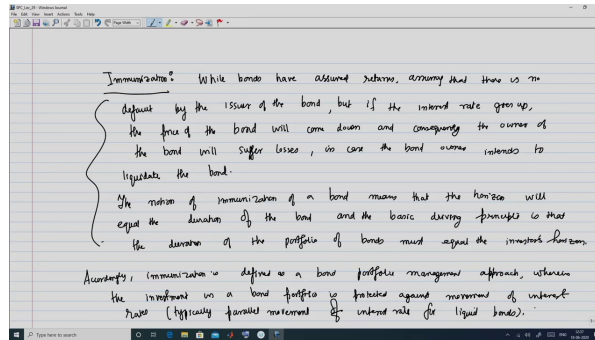 SPC_Lec_39 - Windows Journal
File Edit View Insert Actions Tools Help
Page Width
Immunization: While bonds have assured returns, assuming that there is no
default by the issuer of the bond, but if the interest rate goes up,
the price of the bond will come down and consequently the owner of
the bond will suffer losses, in case the bond owner intends to
liquidate the bond.
The notion of immunization of a bond means that the horizon will
equal the duration of the bond and the basic driving principle is that
the duration of the portfolio of bonds must equal the investor's horizon.
Accordingly, immunization is defined as a bond portfolio management approach, wherein
the investment in a bond portfolio is protected against movement of interest
rates (typically parallel movement of interest rate for liquid bonds).
Type here to search
ENG
12:37